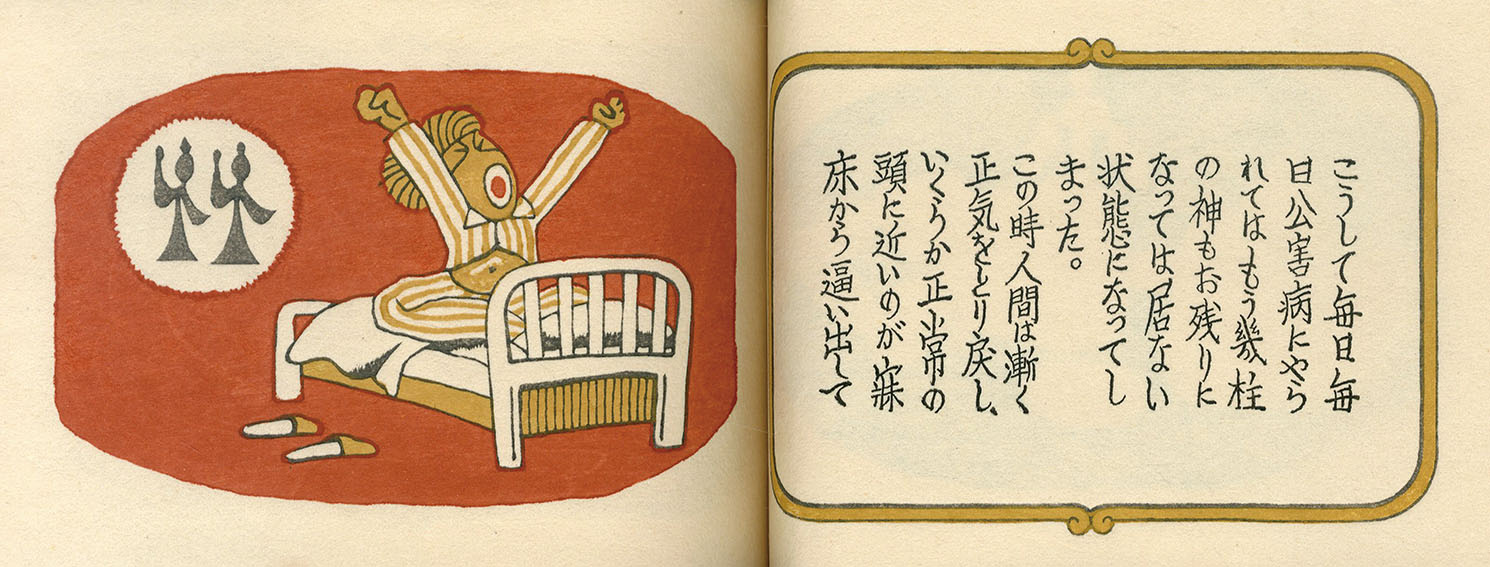 こうして毎日毎
日公害病にやら
れてはもう幾柱
の神もお残りに
なっては居ない
状態になってし
まった。
この時人間は漸く
正気をとり戻し、
いくらか正常の
頭に近いのが寝
床から逼い出して